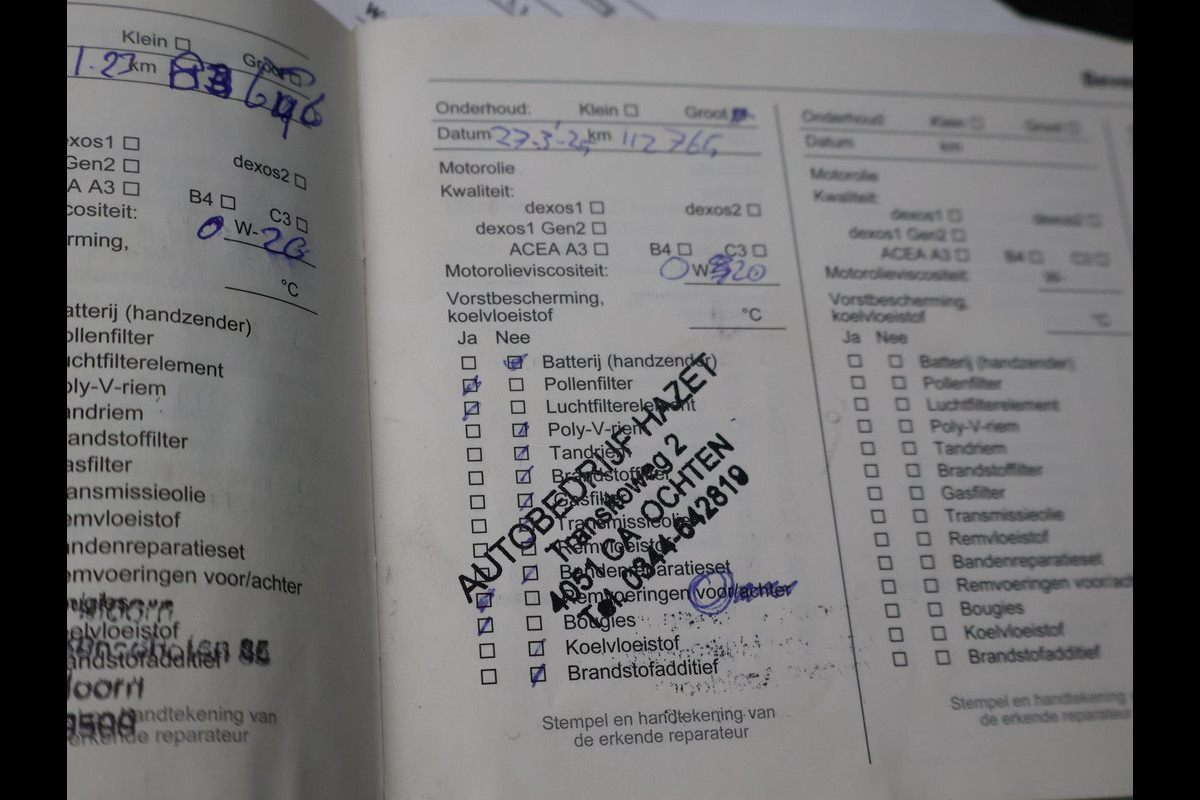 Klein Groot
1-23 km
xos1
Gen2 dexos2
A A3 B4 C3
cositeit: 0 W-20
rming,
°C
atterij (handzender)
ollenfilter
uchtfilterelement
oly-V-riem
andriem
andstoffilter
asfilter
ansmissieolie
emvloeistof
andenreparatieset
emvoeringen voor/achter
ougies
oelvloeistof
andstofadditief
oorn
en handtekening van
erkende reparateur
Onderhoud: Klein Groot
Datum 27-3-25 km 112765
Motorolie
Kwaliteit:
dexos1 dexos2
dexos1 Gen2
ACEA A3 B4 C3
Motorolieviscositeit: 0 W 20
Vorstbescherming,
koelvloeistof °C
Ja Nee
Batterij (handzender)
Pollenfilter
Luchtfilterelement
Poly-V-riem
Tandriem
Brandstoffilter
Gasfilter
Transmissieolie
Remvloeistof
Bandenreparatieset
Remvoeringen voor/achter
Bougies
Koelvloeistof
Brandstofadditief
AUTOBEDRIJF HAZET
Transitoweg 2
4051 CA OCHTEN
Tel. 0344-642819
Stempel en handtekening van
de erkende reparateur
Onderhoud: Klein Groot
Datum km
Motorolie
Kwaliteit:
dexos1 dexos2
dexos1 Gen2
ACEA A3 B4 C3
Motorolieviscositeit: W-
Vorstbescherming,
koelvloeistof °C
Ja Nee
Batterij (handzender)
Pollenfilter
Luchtfilterelement
Poly-V-riem
Tandriem
Brandstoffilter
Gasfilter
Transmissieolie
Remvloeistof
Bandenreparatieset
Remvoeringen voor/ach
Bougies
Koelvloeistof
Brandstofadditief
Stempel en handtekening v
de erkende reparateur